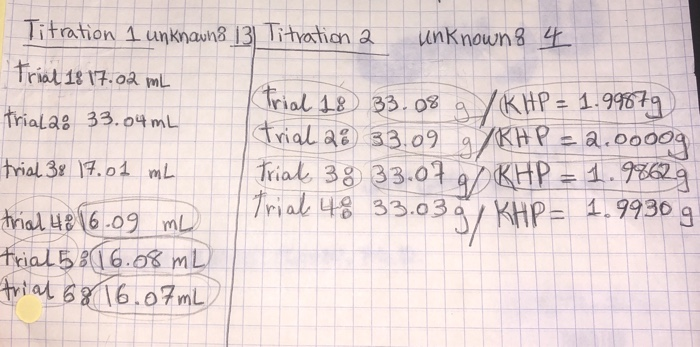 Titration 1 unknown: 13
Trial 1: 17.02 mL
trial 2: 33.04 mL
trial 3: 17.01 mL
trial 4: 16.09 mL
trial 5: 16.08 mL
trial 6: 16.07 mL
Titration 2 unknown: 4
Trial 1: 33.08 g/KHP = 1.9987g
Trial 2: 33.09 g/KHP = 2.0000g
Trial 3: 33.07 g/KHP = 1.9862g
Trial 4: 33.03g/KHP = 1.9930 g